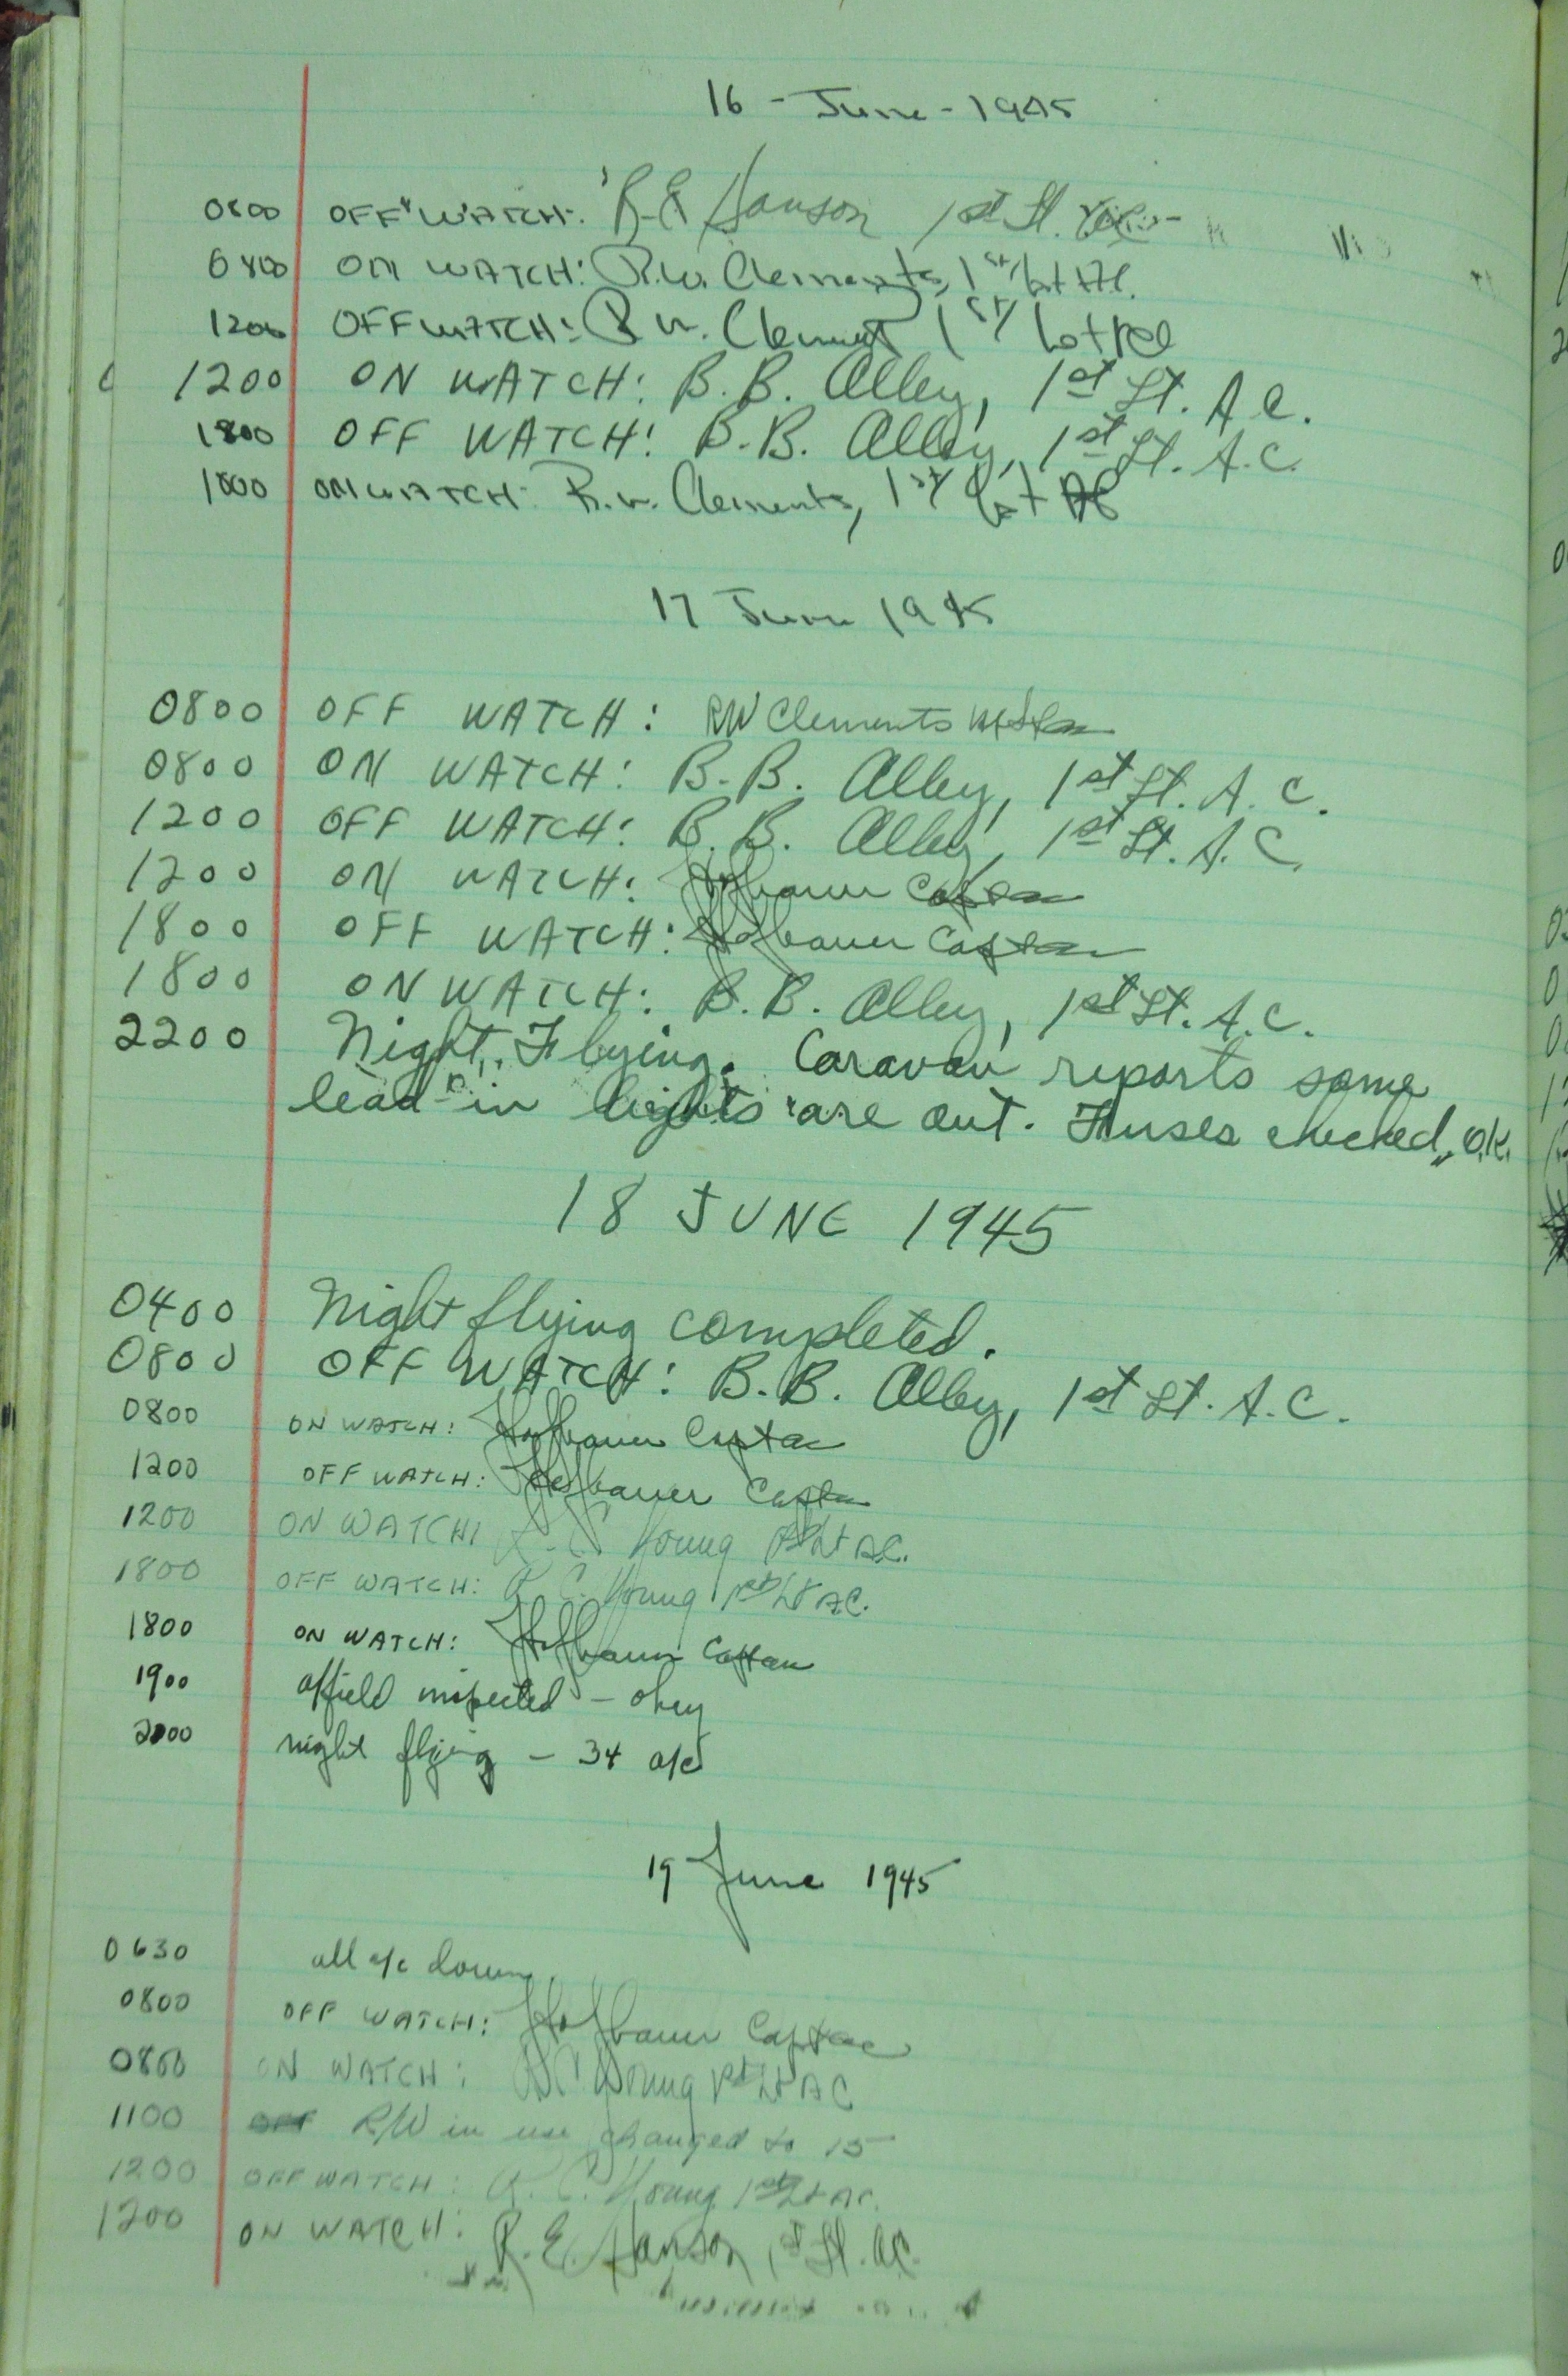 16 - June - 1945
0800 OFF WATCH: R.E. Hanson 1st Lt.
0800 ON WATCH: R.W. Clements, 1st Lt AC.
1200 OFF WATCH: R W. Clement 1st Lt AC
1200 ON WATCH: B.B. Alley, 1st Lt. A.C.
1800 OFF WATCH: B.B. Alley, 1st Lt. A.C.
1800 ON WATCH: R.W. Clements, 1st Lt AC
17 June 1945
0800 OFF WATCH: RW Clements
0800 ON WATCH: B.B. Alley, 1st Lt. A.C.
1200 OFF WATCH: B.B. Alley, 1st Lt. A.C.
1200 ON WATCH: Hofbauer Capt ac
1800 OFF WATCH: Hofbauer Capt ac
1800 ON WATCH: B.B. Alley, 1st Lt. A.C.
2200 Night Flying. Caravan reports some
lead-in lights are out. Fuses checked, O.K.
18 JUNE 1945
0400 Night flying completed.
0800 OFF WATCH: B.B. Alley, 1st Lt. A.C.
0800 ON WATCH: Hofbauer Capt ac
1200 OFF WATCH: Hofbauer Capt ac
1200 ON WATCH: R.C. Young 1st Lt A.C.
1800 OFF WATCH: R.C. Young 1st Lt A.C.
1800 ON WATCH: Hofbauer Capt ac
1900 a/field inspected - okey
2000 night flying - 34 a/c
19 June 1945
0630 all a/c down.
0800 OFF WATCH: Hofbauer Capt ac
0800 ON WATCH: R.C. Young 1st Lt AC
1100 R/W in use changed to 15
1200 OFF WATCH: R.C. Young 1st Lt AC.
1200 ON WATCH: R.E. Hanson, 1st Lt. AC.